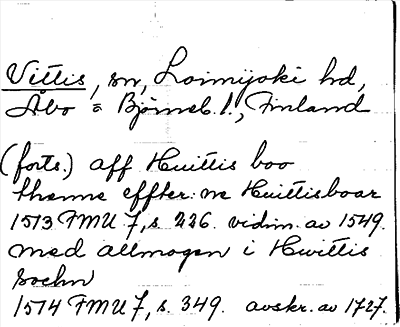 Vittis, sn, Loimijoki hd,
Åbo o Björneb. l., Finland
(forts.) aff Huittis boo
thenne effter:ne Huittisboar
1513 FMU 7, s. 226. vidim. av 1549.
med allmogen i Hwittis
sochn
1514 FMU 7, s. 349. avskr. av 1727.